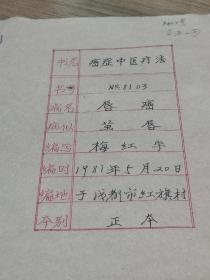 书名 癌症中医疗法
书 No.8103
病名 唇癌
病似 茧唇
编写 梅红宇
编时 1981年5月20日
编地 于成都市红旗村
本别 正本